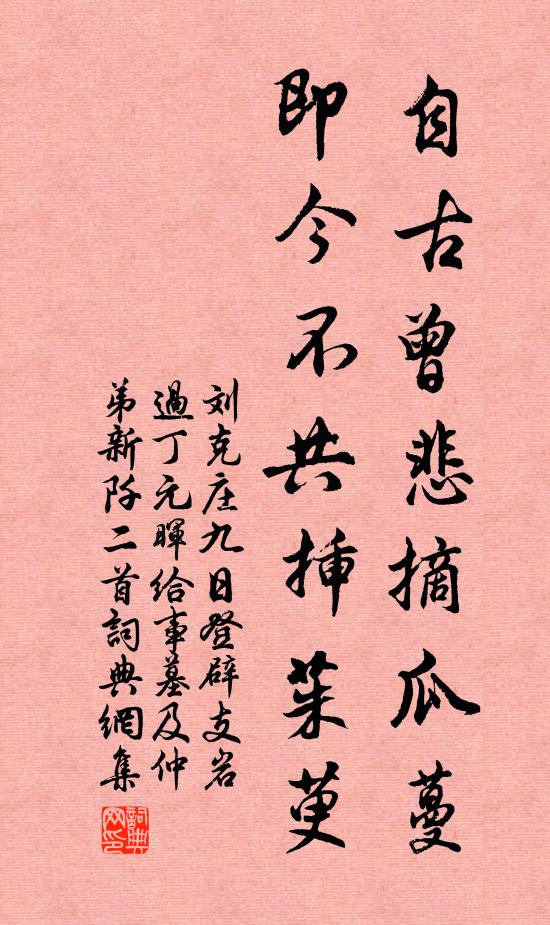 自古曾悲摘瓜蔓
即今不共揷茱萸
刘克庄九日登辟支岩
過丁元暉给事墓及仲
弟新阡二首詞典網集
詞典网印